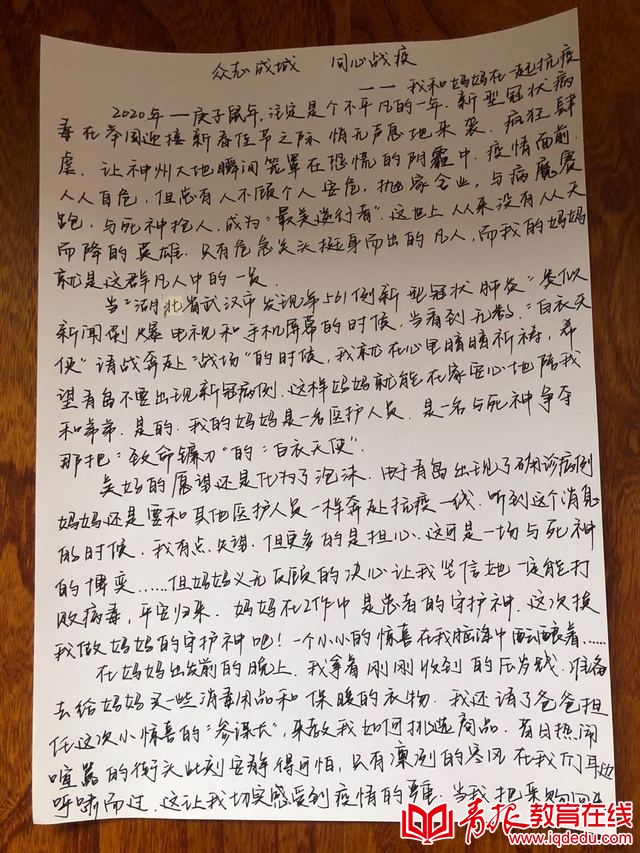 众志成城 同心战疫
——我和妈妈在一起抗疫
2020年一庚子鼠年，注定是个不平凡的一年，新型冠状病
毒在举国迎接新春佳节之际悄无声息地来袭，疯狂肆
虐，让神州大地瞬间笼罩在恐慌的阴霾中，疫情面前，
人人自危，但总有人不顾个人安危，抛家舍业，与病魔赛
跑，与死神抢人，成为“最美逆行者”。这世上从来没有从天
而降的英雄，只有危急关头挺身而出的凡人，而我的妈妈
就是这群凡人中的一员
当“湖北省武汉市发现第561例新型冠状肺炎”类似
新闻刷爆电视和手机屏幕的时候，当看到无数“白衣天
使”请战奔赴“战场”的时候，我就在心里暗暗祈祷，希
望青岛不要出现新冠病例，这样妈妈就能在家安心地陪我
和弟弟。是的，我的妈妈是一名医护人员，是一名与死神争夺
那把“致命镰刀”的“白衣天使”。
的愿望还是化为了泡沫，由于青岛出现了确诊病例
妈妈还是要和其他医护人员一样奔赴抗疫一线，听到这个消息
的时候，我有点失望，但更多的是担心，这可是一场与死神
的博弈……但妈妈义无反顾的决心让我坚信她一定能打
败病毒，平安归来，妈妈在工作中是患者的守护神，这次换
我做妈妈的守护神吧！一个小小的惊喜在我脑海中酝酿着……
在妈妈出发前的晚上，我拿着刚刚收到的压岁钱，准备
去给妈妈买一些消毒用品和保暖的衣物，我还请了爸爸担
任这次小惊喜的“参谋长”，来教我如何挑选商品，昔日热闹
喧嚣的街头此刻安静得可怕，只有凛冽的寒风在我们耳边
呼啸而过，这让我切实感受到疫情的严重，当我把采购回来
青报教育在线
www.iqdedu.com